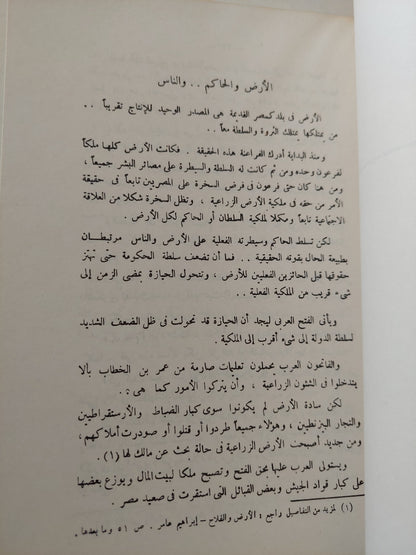 الأرض والحاكم .. والناس
الأرض فى بلد كمصر القديمة هى المصدر الوحيد للإنتاج تقريباً ..
من يمتلكها يمتلك الثروة والسلطة معاً ..
ومنذ البداية أدرك الفراعنة هذه الحقيقة . فكانت الأرض كلها ملكاً
لفرعون وحده ومن ثم كانت له السلطة والسيطرة على مصائر البشر جميعاً ،
ومن هنا كان حق فرعون فى فرض السخرة على المصريين تابعاً فى حقيقة
الأمر من حقه فى ملكية الأرض الزراعية ، وتظل السخرة شكلا من العلاقة
الاجتماعية تابعاً ومكملا لملكية السلطان أو الحاكم لكل الأرض .
لكن تسلط الحاكم وسيطرته الفعلية على الأرض والناس مرتبطان
بطبيعة الحال بقوته الحقيقية .. فما أن تضعف سلطة الحكومة حتى تهتز
حقوقها قبل الحائزين الفعليين للأرض ، وتتحول الحيازة بمضى الزمن إلى
شىء قريب من الملكية الفعلية ..
ويأتى الفتح العربى ليجد أن الحيازة قد تحولت فى ظل الضعف الشديد
لسلطة الدولة إلى شىء أقرب إلى الملكية .
والفاتحون العرب يحملون تعليمات صارمة من عمر بن الخطاب بألا
يتدخلوا فى الشئون الزراعية ، وأن يتركوا الأمور كما هى .
لكن سادة الأرض لم يكونوا سوى كبار الضباط والأرستقراطيين
والتجار البيزنطيين ، وهؤلاء جميعاً طردوا أو قتلوا أو صودرت أملاكهم ،
ومن جديد أصبحت الأرض الزراعية فى حالة بحث عن مالك لها (١) .
ويستولى العرب عليها بحق الفتح وتصبح ملكا لبيت المال ويوزع بعضها
على كبار قواد الجيش وبعض القبائل التى استقرت فى صعيد مصر .
(١) لمزيد من التفاصيل راجع : الأرض والفلاح – إبراهيم عامر . ص ٥١ وما بعدها .